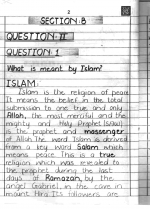 2
SECTION:B
QUESTION:II
QUESTION:1
What is meant by Islam?
ISLAM:
Islam is the religion of peace
It means the belief in the total
submission to one true and only
Allah, the most merciful and the
mighty and Holy Prophet (SAW)
is the prophet and messenger
of Allah. The word Islam is derived
from a key word Salam which
means peace. This is a true
religion which was revealed to
the prophet during the last
days of Ramazan, by the
angel Gabriel in the cave in
mount Hira. Its followers are